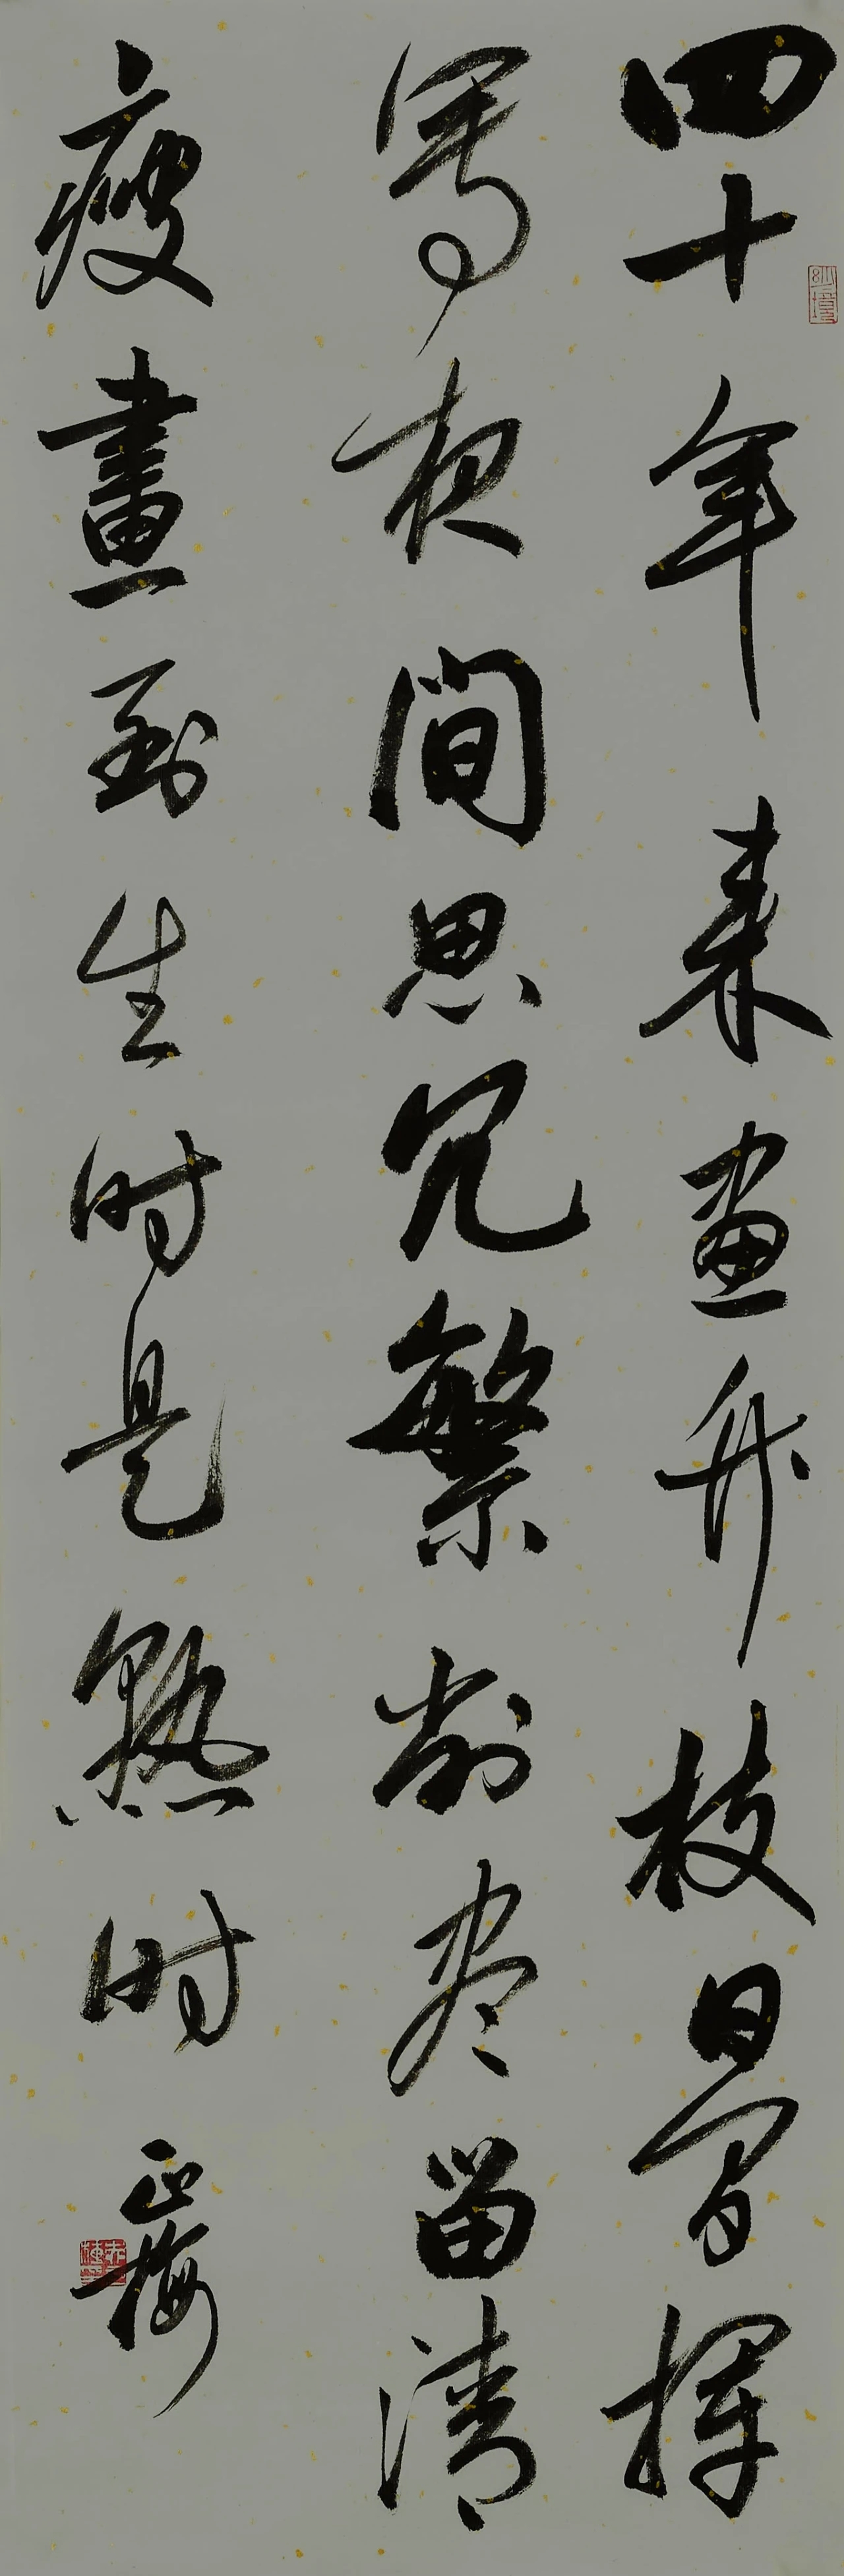 四十年来画竹枝日间揮
寫夜间思冗繁削尽留清
瘦畫到生时是熟时
正梅